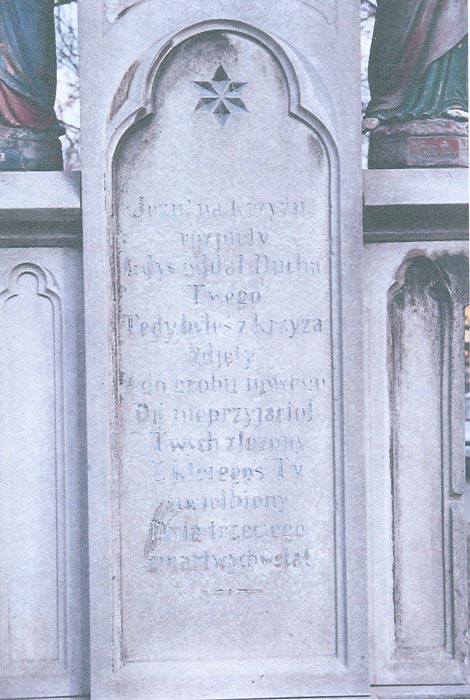 Jezu! na krzyżu
rozpięty
Gdyś oddał Ducha
Twego
Tedy byłeś z krzyża
zdjęty
I do grobu nowego
Od nieprzyjaciół
Twych złożony
Z któregoś Ty
uwielbiony
Dnia trzeciego
zmartwychwstał